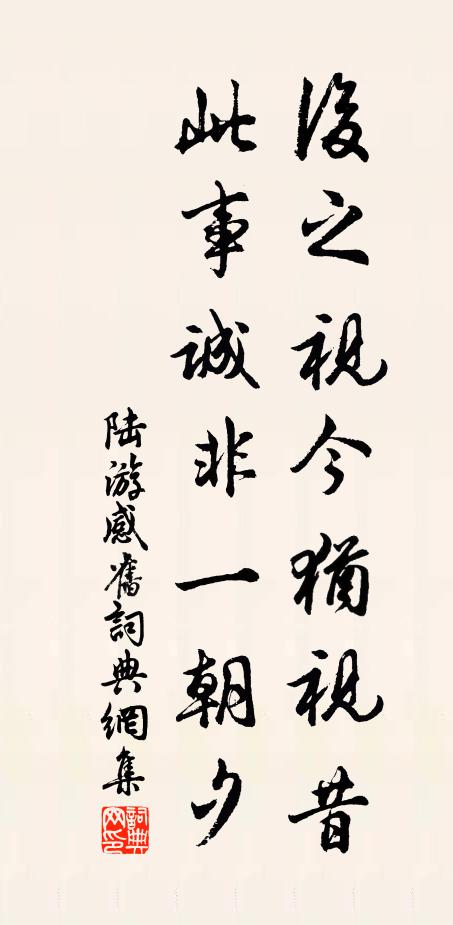 後之視今猶視昔
此事誠非一朝夕
陸游感舊詞典網集
詞典網印